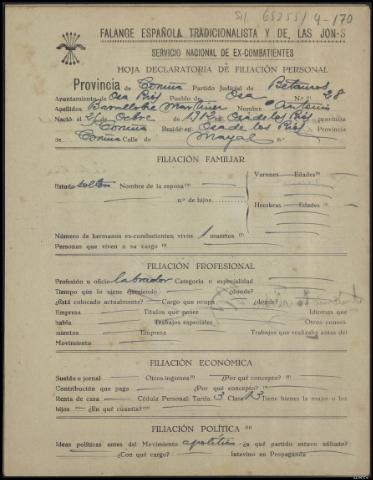 SI, 65255/4-170
FALANGE ESPAÑOLA TRADICIONALISTA Y DE LAS JON-S
SERVICIO NACIONAL DE EX-COMBATIENTES
HOJA DECLARATORIA DE FILIACIÓN PERSONAL
Provincia de Coruña Partido Judicial de Betanzos
Ayuntamiento de Oza Ríos Pueblo de Oza N.º 28
Apellidos Martínez Nombre Antonio
Nació el de Octubre de 1912 en Oza de los Ríos provincia
de Coruña Reside en Oza de los Ríos Provincia
de Coruña Calle de
FILIACIÓN FAMILIAR
Varones Edades
Estado soltero Nombre de la esposa
n.º de hijos
Hembras Edades
Número de hermanos ex-combatientes, vivos 1 muertos
Personas que viven a su cargo
FILIACIÓN PROFESIONAL
Profesión u oficio labrador Categoría o especialidad
Tiempo que lo viene ejerciendo ¿dónde?
¿Está colocado actualmente? Cargo que ocupa ¿dónde?
Empresa Títulos que posee Idiomas que
habla Trabajos especiales Otros conoci-
mientos Empresa Trabajos que realizaba antes del
Movimiento
FILIACIÓN ECONÓMICA
Sueldo o jornal Otros ingresos ¿Por qué concepto?
Contribución que paga ¿Por qué concepto?
Renta de casa Cédula Personal Tarifa 3 Clase 13 Tiene bienes la mujer o los
hijos ¿En qué cuantía?
FILIACIÓN POLÍTICA
Ideas políticas antes del Movimiento apolítico ¿a qué partido estuvo afiliado?
¿Con qué cargo? Intervino en Propaganda